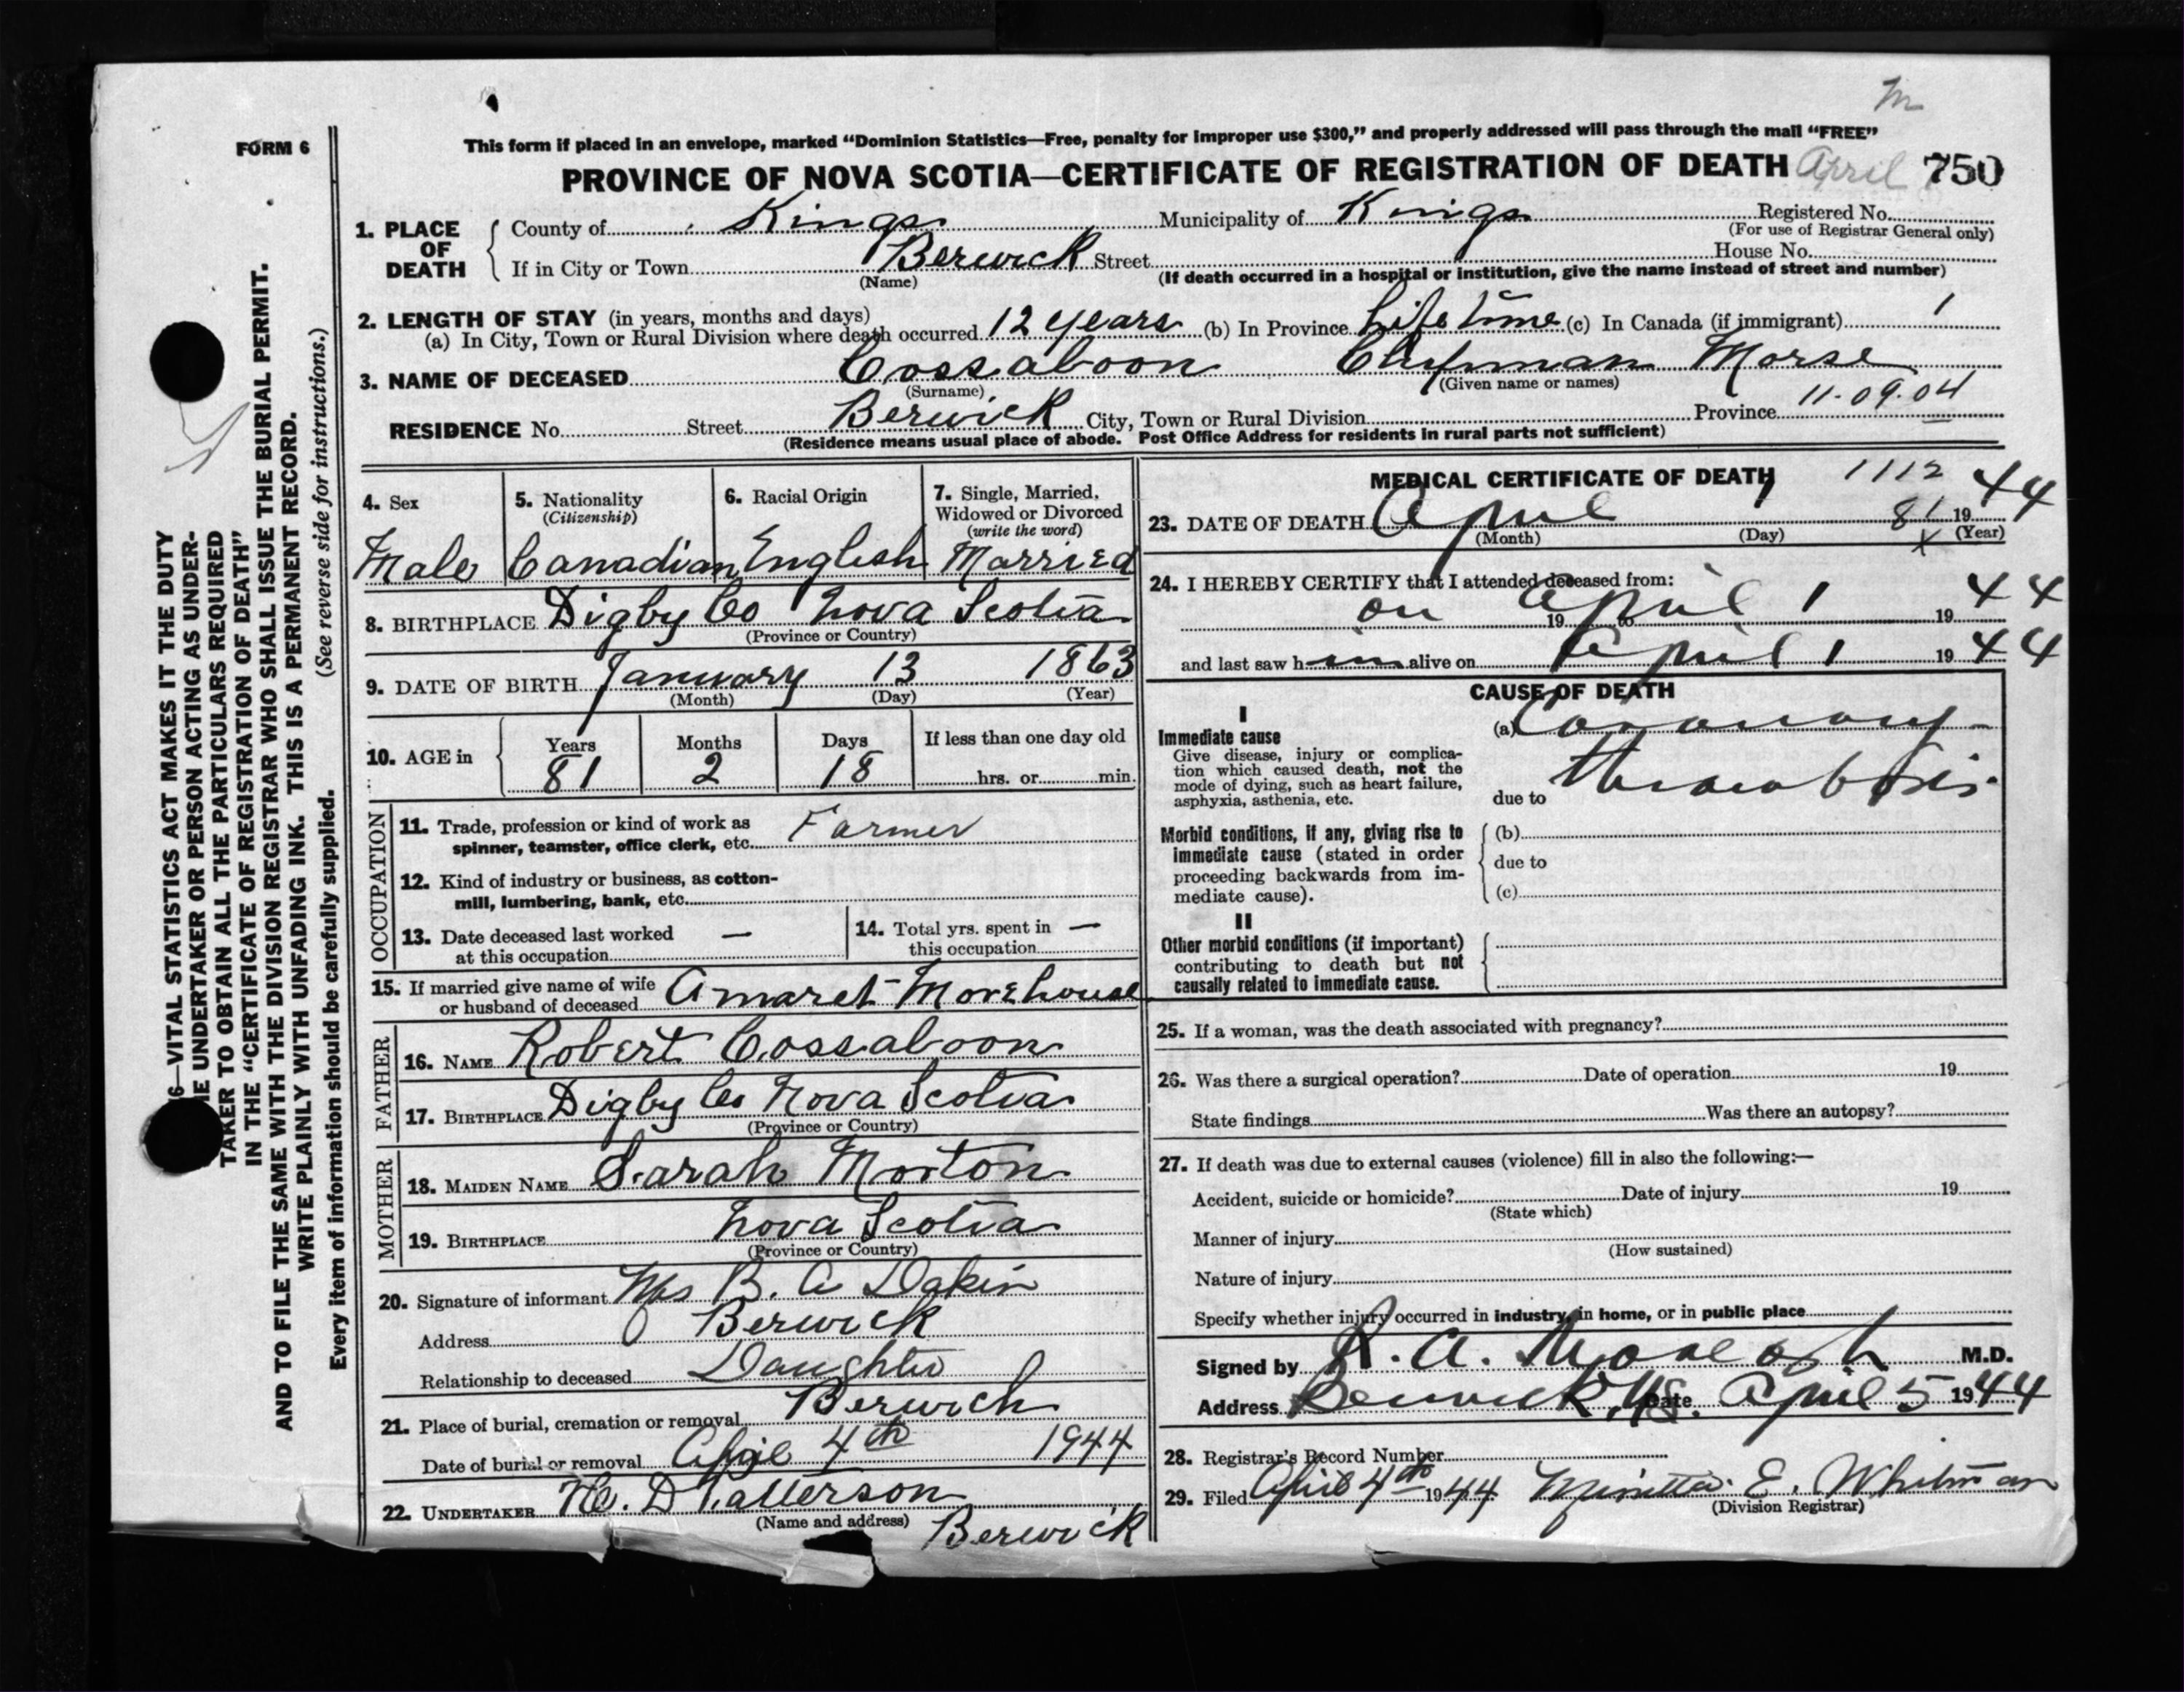 m
FORM 6
This form if placed in an envelope, marked "Dominion Statistics—Free, penalty for improper use $300," and properly addressed will pass through the mail "FREE"
PROVINCE OF NOVA SCOTIA—CERTIFICATE OF REGISTRATION OF DEATH April 750
1. PLACE OF DEATH
County of Kings Municipality of Kings Registered No.
(For use of Registrar General only)
If in City or Town Berwick Street House No.
(Name) (If death occurred in a hospital or institution, give the name instead of street and number)
2. LENGTH OF STAY (in years, months and days)
(a) In City, Town or Rural Division where death occurred 12 years (b) In Province Life time (c) In Canada (if immigrant) 1
3. NAME OF DECEASED Cossaboon Chipman Morse
(Surname) (Given name or names)
RESIDENCE No. Street Berwick City, Town or Rural Division Province 11-09-04
(Residence means usual place of abode. Post Office Address for residents in rural parts not sufficient)
4. Sex
Male
5. Nationality
(Citizenship)
Canadian
6. Racial Origin
English
7. Single, Married, Widowed or Divorced
(write the word)
Married
8. BIRTHPLACE Digby Co Nova Scotia
(Province or Country)
9. DATE OF BIRTH January 13 1863
(Month) (Day) (Year)
10. AGE in
Years 81
Months 2
Days 18
If less than one day old
hrs. or min.
OCCUPATION
11. Trade, profession or kind of work as Farmer
spinner, teamster, office clerk, etc.
12. Kind of industry or business, as cotton-
mill, lumbering, bank, etc.
13. Date deceased last worked —
at this occupation
14. Total yrs. spent in —
this occupation
15. If married give name of wife
or husband of deceased Amaret Morehouse
FATHER
16. NAME Robert Cossaboon
17. BIRTHPLACE Digby Co Nova Scotia
(Province or Country)
MOTHER
18. MAIDEN NAME Sarah Morton
19. BIRTHPLACE Nova Scotia
(Province or Country)
20. Signature of informant Mrs B. A Dakin
Address Berwick
Relationship to deceased Daughter
21. Place of burial, cremation or removal Berwick
Date of burial or removal April 4th 1944
22. UNDERTAKER D Patterson
(Name and address) Berwick
MEDICAL CERTIFICATE OF DEATH 1112
23. DATE OF DEATH April 1 81 19 44
(Month) (Day) x (Year)
24. I HEREBY CERTIFY that I attended deceased from:
on 19 to April 1 19 44
and last saw him alive on April 1 19 44
CAUSE OF DEATH
I
Immediate cause
Give disease, injury or complica-
tion which caused death, not the
mode of dying, such as heart failure,
asphyxia, asthenia, etc.
(a) Coronary
due to thrombosis
Morbid conditions, if any, giving rise to
immediate cause (stated in order
proceeding backwards from im-
mediate cause).
(b)
due to
(c)
II
Other morbid conditions (if important)
contributing to death but not
causally related to immediate cause.
25. If a woman, was the death associated with pregnancy?
26. Was there a surgical operation? Date of operation 19
State findings Was there an autopsy?
27. If death was due to external causes (violence) fill in also the following:—
Accident, suicide or homicide? Date of injury 19
(State which)
Manner of injury
(How sustained)
Nature of injury
Specify whether injury occurred in industry, in home, or in public place
Signed by R. A. M.D.
Address Berwick, NS. Date April 5 1944
28. Registrar's Record Number
29. Filed April 4th 1944 Minetta E. Whitman
(Division Registrar)
6—VITAL STATISTICS ACT MAKES IT THE DUTY
THE UNDERTAKER OR PERSON ACTING AS UNDER-
TAKER TO OBTAIN ALL THE PARTICULARS REQUIRED
IN THE "CERTIFICATE OF REGISTRATION OF DEATH"
AND TO FILE THE SAME WITH THE DIVISION REGISTRAR WHO SHALL ISSUE THE BURIAL PERMIT.
WRITE PLAINLY WITH UNFADING INK. THIS IS A PERMANENT RECORD.
Every item of information should be carefully supplied. (See reverse side for instructions.)